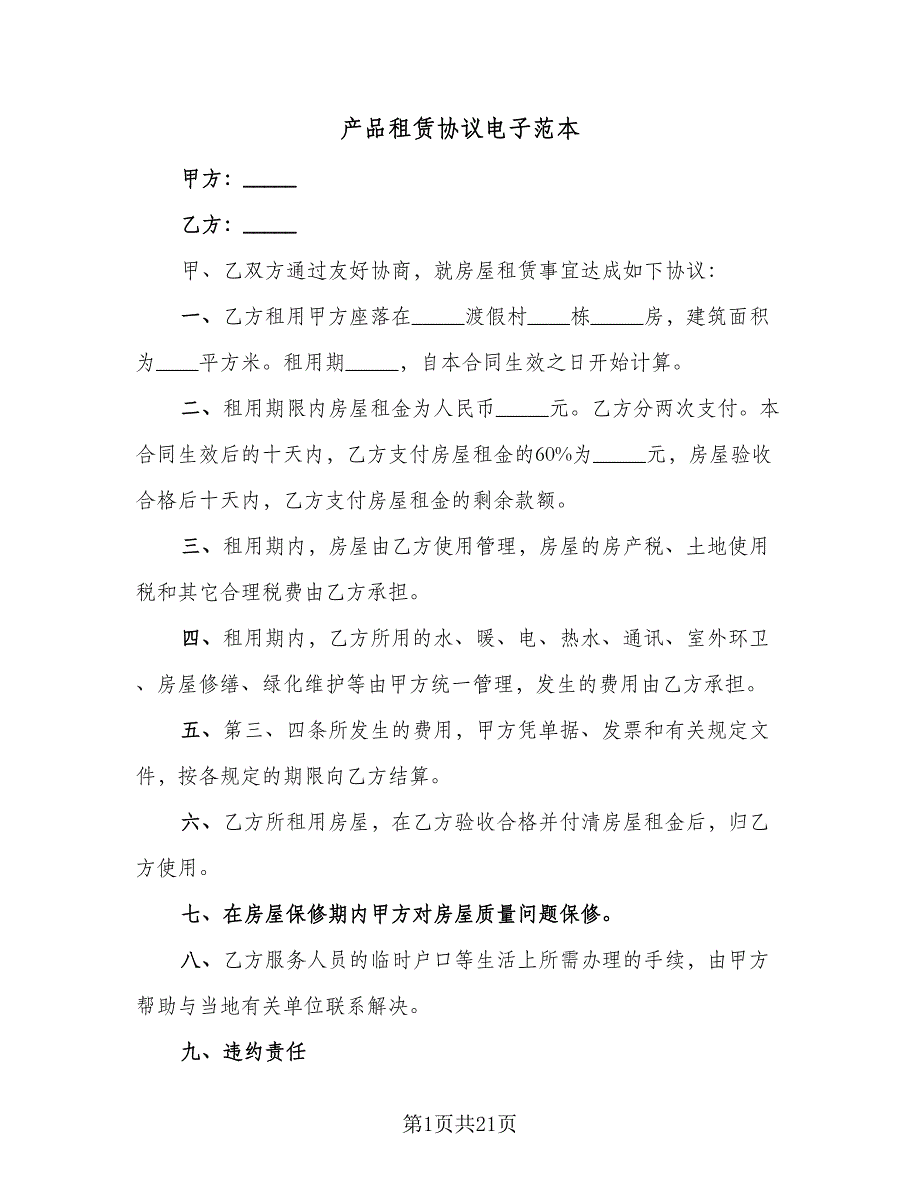 产品租赁协议电子范本
甲方：_____
乙方：_____
甲、乙双方通过友好协商，就房屋租赁事宜达成如下协议：
一、乙方租用甲方座落在_____渡假村____栋_____房，建筑面积
为____平方米。租用期_____，自本合同生效之日开始计算。
二、租用期限内房屋租金为人民币_____元。乙方分两次支付。本
合同生效后的十天内，乙方支付房屋租金的60%为_____元，房屋验收
合格后十天内，乙方支付房屋租金的剩余款额。
三、租用期内，房屋由乙方使用管理，房屋的房产税、土地使用
税和其它合理税费由乙方承担。
四、租用期内，乙方所用的水、暖、电、热水、通讯、室外环卫
、房屋修缮、绿化维护等由甲方统一管理，发生的费用由乙方承担。
五、第三、四条所发生的费用，甲方凭单据、发票和有关规定文
件，按各规定的期限向乙方结算。
六、乙方所租用房屋，在乙方验收合格并付清房屋租金后，归乙
方使用。
七、在房屋保修期内甲方对房屋质量问题保修。
八、乙方服务人员的临时户口等生活上所需办理的手续，由甲方
帮助与当地有关单位联系解决。
九、违约责任
第1页共21页